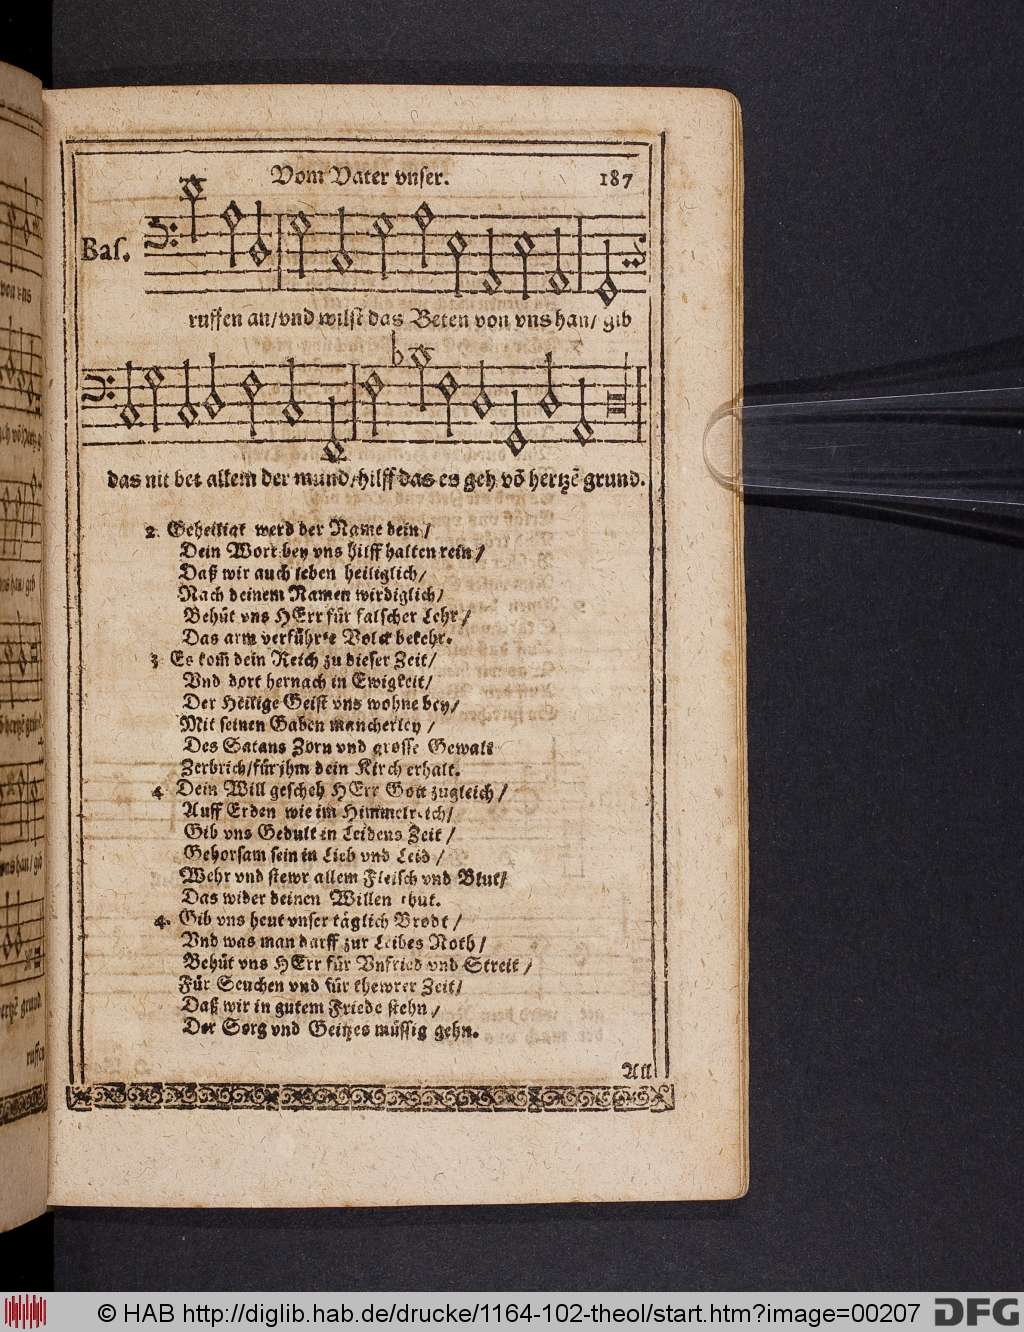 Vom Vater vnser. 187
Bas.
ruffen an/vnd wilst das Beten von vns han/ gib
das nit bet allein der mund/hilff das es geh võ hertzẽ grund.
2. Geheiligt werd der Name dein/
Dein Wort bey vns hilff halten rein/
Daß wir auch leben heiliglich/
Nach deinem Namen wirdiglich/
Behüt vns HErr für falscher Lehr/
Das arm verführte Volck bekehr.
3 Es kom̃ dein Reich zu dieser Zeit/
Vnd dort hernach in Ewigkeit/
Der Heilige Geist vns wohne bey/
Mit seinen Gaben mancherley/
Des Satans Zorn vnd grosse Gewalt
Zerbrich/für jhm dein Kirch erhalt.
4 Dein Will gescheh HErr Gott zugleich/
Auff Erden wie im Himmelreich/
Gib vns Gedult in Leidens Zeit/
Gehorsam sein in Lieb vnd Leid/
Wehr vnd stewr allem Fleisch vnd Blut/
Das wider deinen Willen thut.
4. Gib vns heut vnser täglich Brodt/
Vnd was man darff zur Leibes Noth/
Behüt vns HErr für Vnfried vnd Streit/
Für Seuchen vnd für thewrer Zeit/
Daß wir in gutem Friede stehn/
Der Sorg vnd Geitzes müssig gehn.
All
© HAB http://diglib.hab.de/drucke/1164-102-theol/start.htm?image=00207
DFG